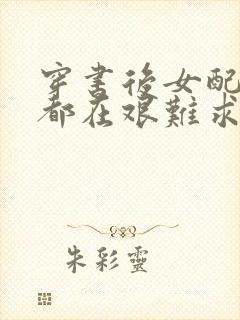 穿書後女配
都在艱難求
朱彩靈